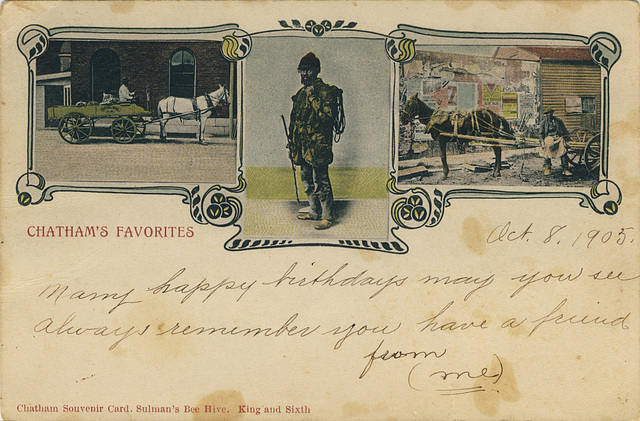 CHATHAM'S FAVORITES
Oct. 8, 1905.
Many happy birthdays may you see
always remember you have a friend
from
(me)
Chatham Souvenir Card. Sulman's Bee Hive. King and Sixth